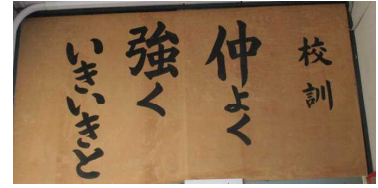 校訓
仲よく
強く
いきいきと